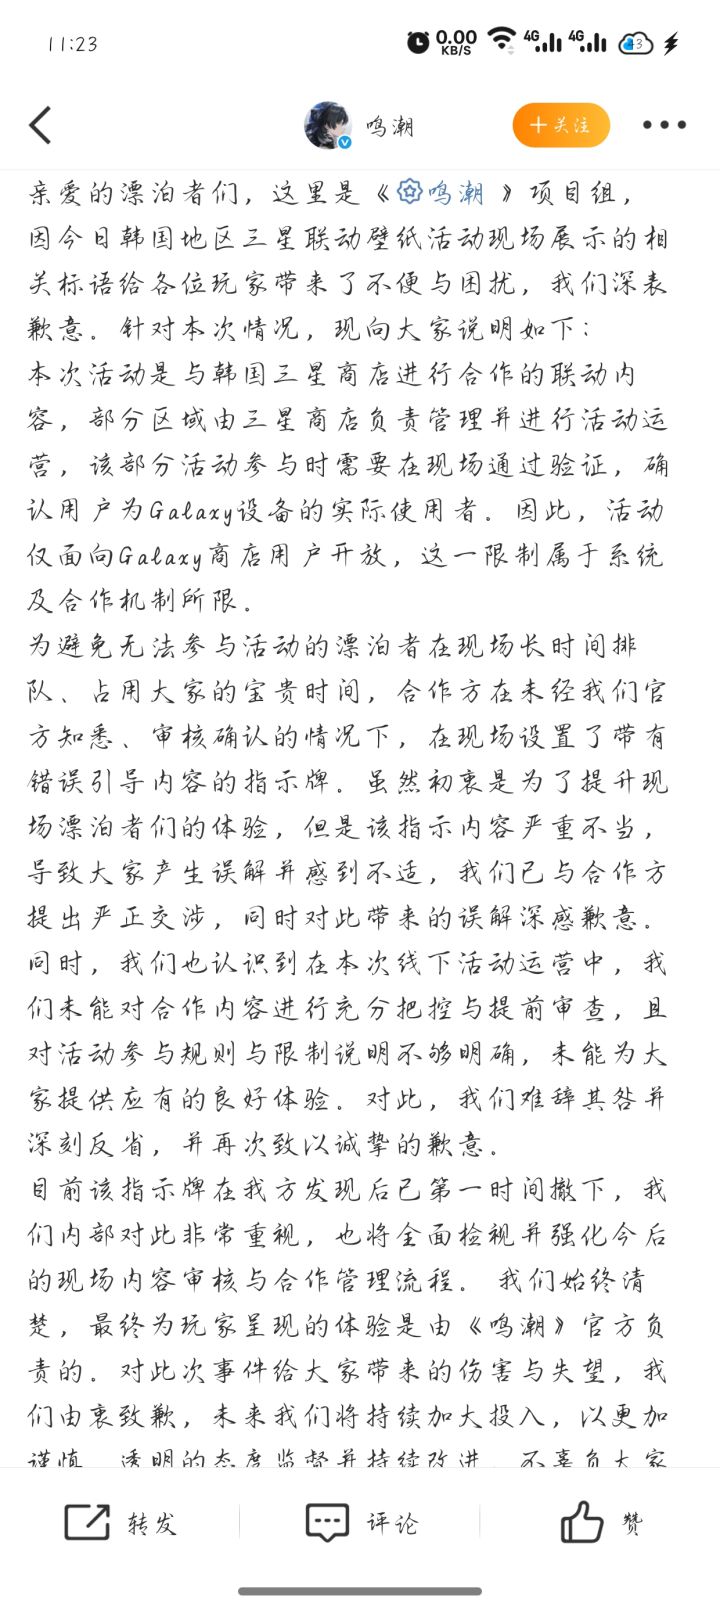 11:23
0.00
KB/S
4G
4G
+3
鸣潮
+关注
亲爱的漂泊者们，这里是《鸣潮 》项目组，
因今日韩国地区三星联动壁纸活动现场展示的相
关标语给各位玩家带来了不便与困扰，我们深表
歉意。针对本次情况，现向大家说明如下：
本次活动是与韩国三星商店进行合作的联动内
容，部分区域由三星商店负责管理并进行活动运
营，该部分活动参与时需要在现场通过验证，确
认用户为Galaxy设备的实际使用者。因此，活动
仅面向Galaxy商店用户开放，这一限制属于系统
及合作机制所限。
为避免无法参与活动的漂泊者在现场长时间排
队、占用大家的宝贵时间，合作方在未经我们官
方知悉、审核确认的情况下，在现场设置了带有
错误引导内容的指示牌。虽然初衷是为了提升现
场漂泊者们的体验，但是该指示内容严重不当，
导致大家产生误解并感到不适，我们已与合作方
提出严正交涉，同时对此带来的误解深感歉意。
同时，我们也认识到在本次线下活动运营中，我
们未能对合作内容进行充分把控与提前审查，且
对活动参与规则与限制说明不够明确，未能为大
家提供应有的良好体验。对此，我们难辞其咎并
深刻反省，并再次致以诚挚的歉意。
目前该指示牌在我方发现后已第一时间撤下，我
们内部对此非常重视，也将全面检视并强化今后
的现场内容审核与合作管理流程。 我们始终清
楚，最终为玩家呈现的体验是由《鸣潮》官方负
责的。对此次事件给大家带来的伤害与失望，我
们由衷致歉，未来我们将持续加大投入，以更加
谨慎、透明的态度监督并持续改进，不辜负大家
转发
评论
赞